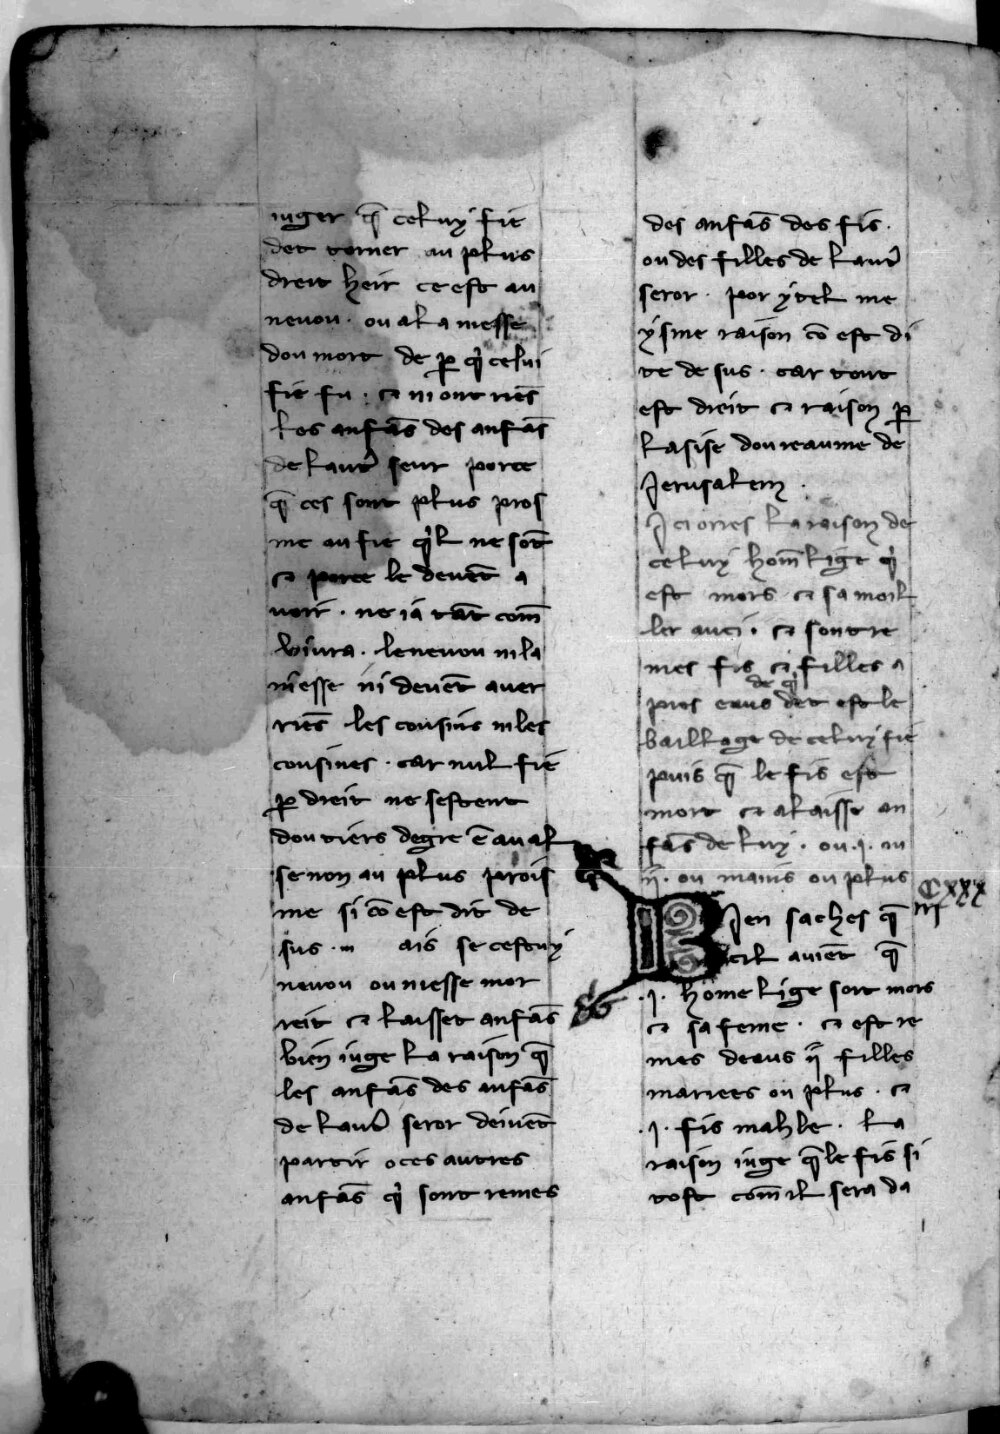 iuger q̄ celuy fie
det torner au plus
dreit heir ce est au
nevou · ou a la niesse
dou mort de p̲ q̍ celui
fie fu · ⁊ ni ont riēs
les anfās des anfās
de lautˀ seur porce
q̄ ces sont plus pros
me au fie q̍l ne sōt
⁊ porce le devēt a
voir · ne ia tāt com̄
vivra · le nevou ni la
niesse ni devēt aver
riēs les cousins ni les
cousines · car nul fie
p̲ dreit ne sestent
dou tiers degre ē aval
se non au plus prois
me si cō est dit de
sus · m ais se cestuy
nevou ou niesse mor
reit ⁊ laisset anfās
bien iuge la raison q̄
les anfās des anfās
de lautˀ seror deivēt
partir o ces autres
anfās q̍ sont remes
des anfās des fis ·
ou des filles de lautˀ
seror · por ytel me
ysme raison cō est di
te de sus · car tout
est dreit ⁊ raison p̲
lasise dou reaume de
Jerusalem ·
Ici orres la raison de
celuy hom̄ lige q̍
est mors ⁊ sa moil
ler auci · ⁊ sont re
mes fis ⁊ filles a
de q̍
pres eaus det est le
baillage de celuy fie
puis q̄ le fis est
mort ⁊ a laisse an
fās de luy · ou ·i· ou
ii · ou mains ou plus
CXXX
iii
Bien saches q̄
cil avient q̄
·i· home lige soit mors
⁊ sa feme · ⁊ est re
mes deaus ii filles
mariees ou plus · ⁊
·i· fis mahle · la
raison iuge q̄ le fis si
tost com̄ il sera da